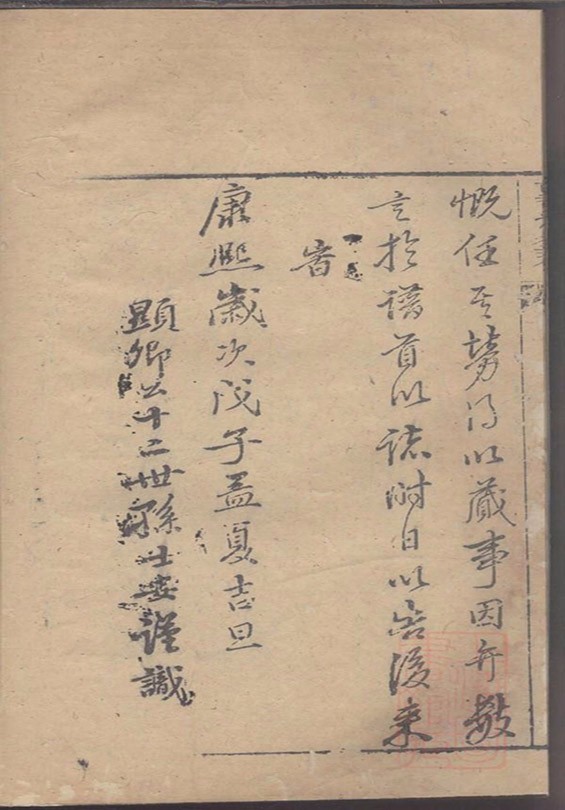 慨任其勞得以蕆事因弁數
言於譜首以誌時日以告後來
者
康熙歲次戊子孟夏吉旦
顯卿公十二世孫士謹識